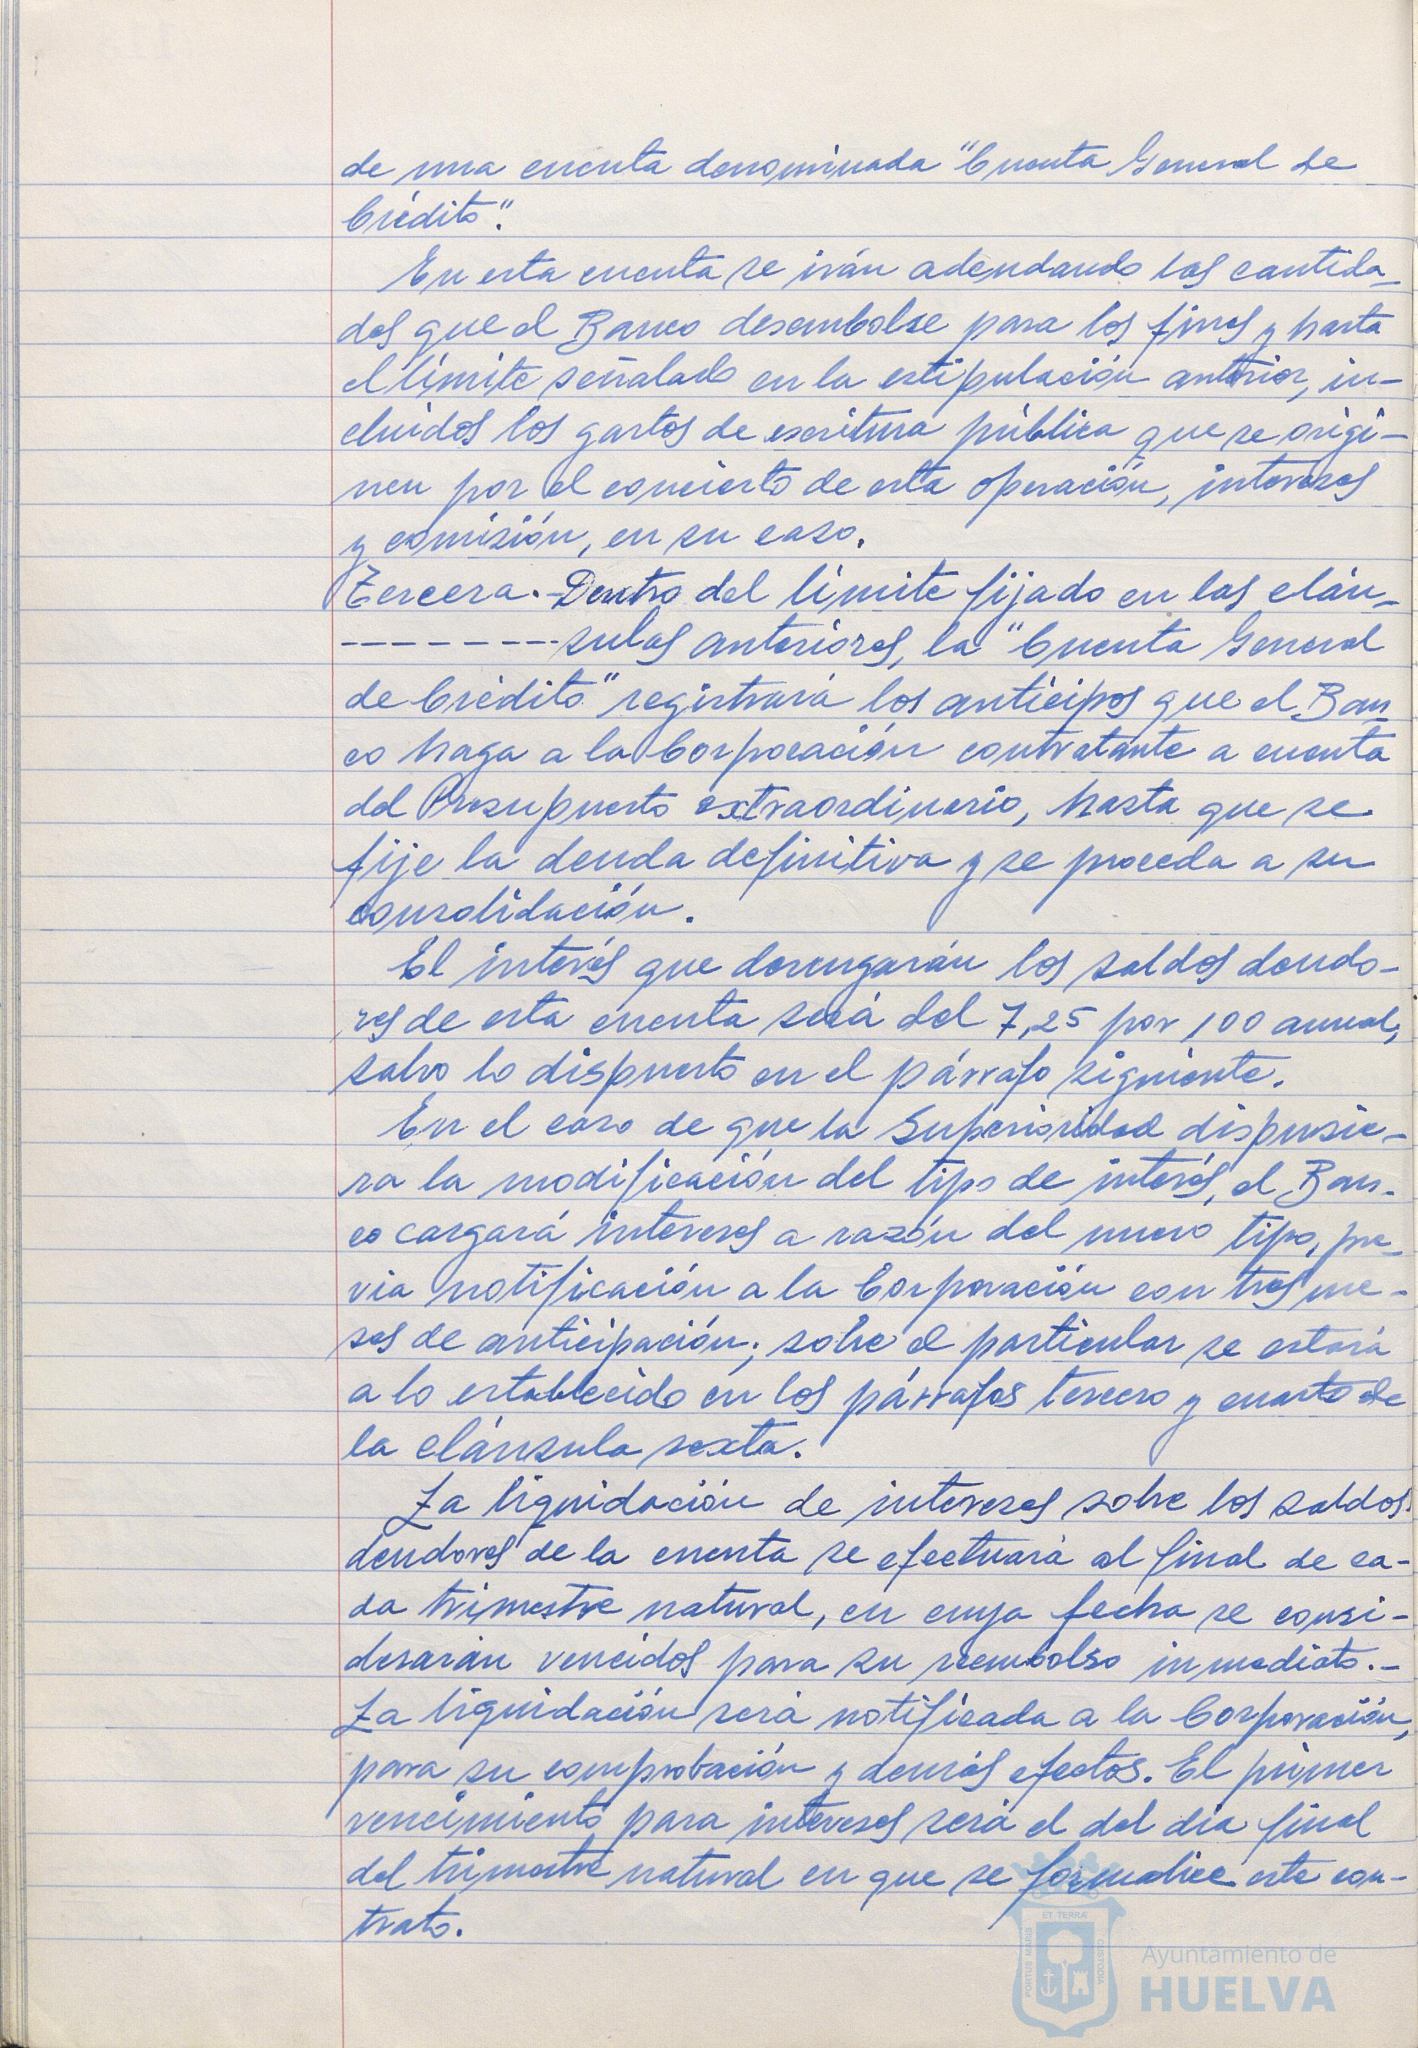 de una cuenta denominada "Cuenta General de
Crédito".
En esta cuenta se irán adeudando las cantida-
des que el Banco desembolse para los fines y hasta
el límite señalado en la estipulación anterior, in-
cluidos los gastos de escritura pública que se origi-
nen por el concierto de esta operación, intereses
y comisión, en su caso.
Tercera.- Dentro del límite fijado en las cláu-
--------- sulas anteriores, la "Cuenta General
de Crédito" registrará los anticipos que el Ban-
co haga a la Corporación contratante a cuenta
del Presupuesto extraordinario, hasta que se
fije la deuda definitiva y se proceda a su
consolidación.
El interés que devengarán los saldos deudo-
res de esta cuenta será del 7,25 por 100 anual,
salvo lo dispuesto en el párrafo siguiente.
En el caso de que la Superioridad dispusie-
ra la modificación del tipo de interés, el Ban-
co cargará intereses a razón del nuevo tipo, pre-
via notificación a la Corporación con tres me-
ses de anticipación; sobre el particular se estará
a lo establecido en los párrafos tercero y cuarto de
la cláusula sexta.
La liquidación de intereses sobre los saldos
deudores de la cuenta se efectuará al final de ca-
da trimestre natural, en cuya fecha se consi-
derarán vencidos para su reembolso inmediato.-
La liquidación será notificada a la Corporación,
para su comprobación y demás efectos. El primer
vencimiento para intereses será el del día final
del trimestre natural en que se formalice este con-
trato.
ET TERRA
PORTUS MARIS
CUSTODIA
Ayuntamiento de
HUELVA